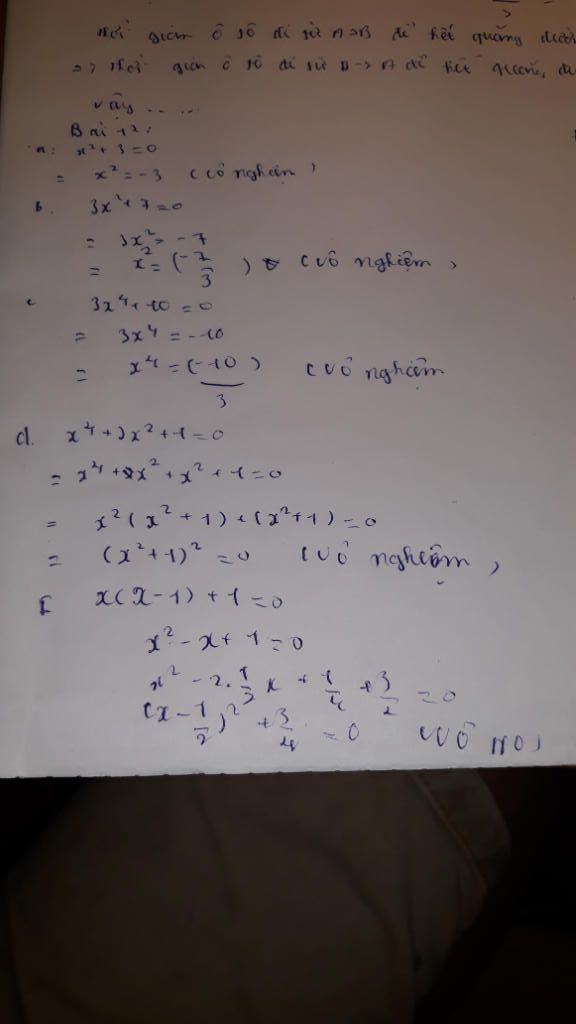 gian ô tô đi từ A→B để hết quãng đườ
=> gian ô tô đi từ B→A để hết
vậy .....
Bài 12:
a: x² + 3 = 0
= x² = -3 (vô nghiệm)
b. 3x² + 7 = 0
= 3x² = -7
= x² = (-7/3) (vô nghiệm)
c 3x⁴ + 10 = 0
= 3x⁴ = -10
= x⁴ = (-10)/3 (vô nghiệm
d. x⁴ + 2x² + 1 = 0
= x⁴ + x² + x² + 1 = 0
= x²(x² + 1) + (x² + 1) = 0
= (x² + 1)² = 0 (vô nghiệm)
x(x - 1) + 1 = 0
x² - x + 1 = 0
x² - 2.1/2 x + 1/4 + 3/2 = 0
(x - 1/2)² + 3/4 = 0 (VÔ NO)